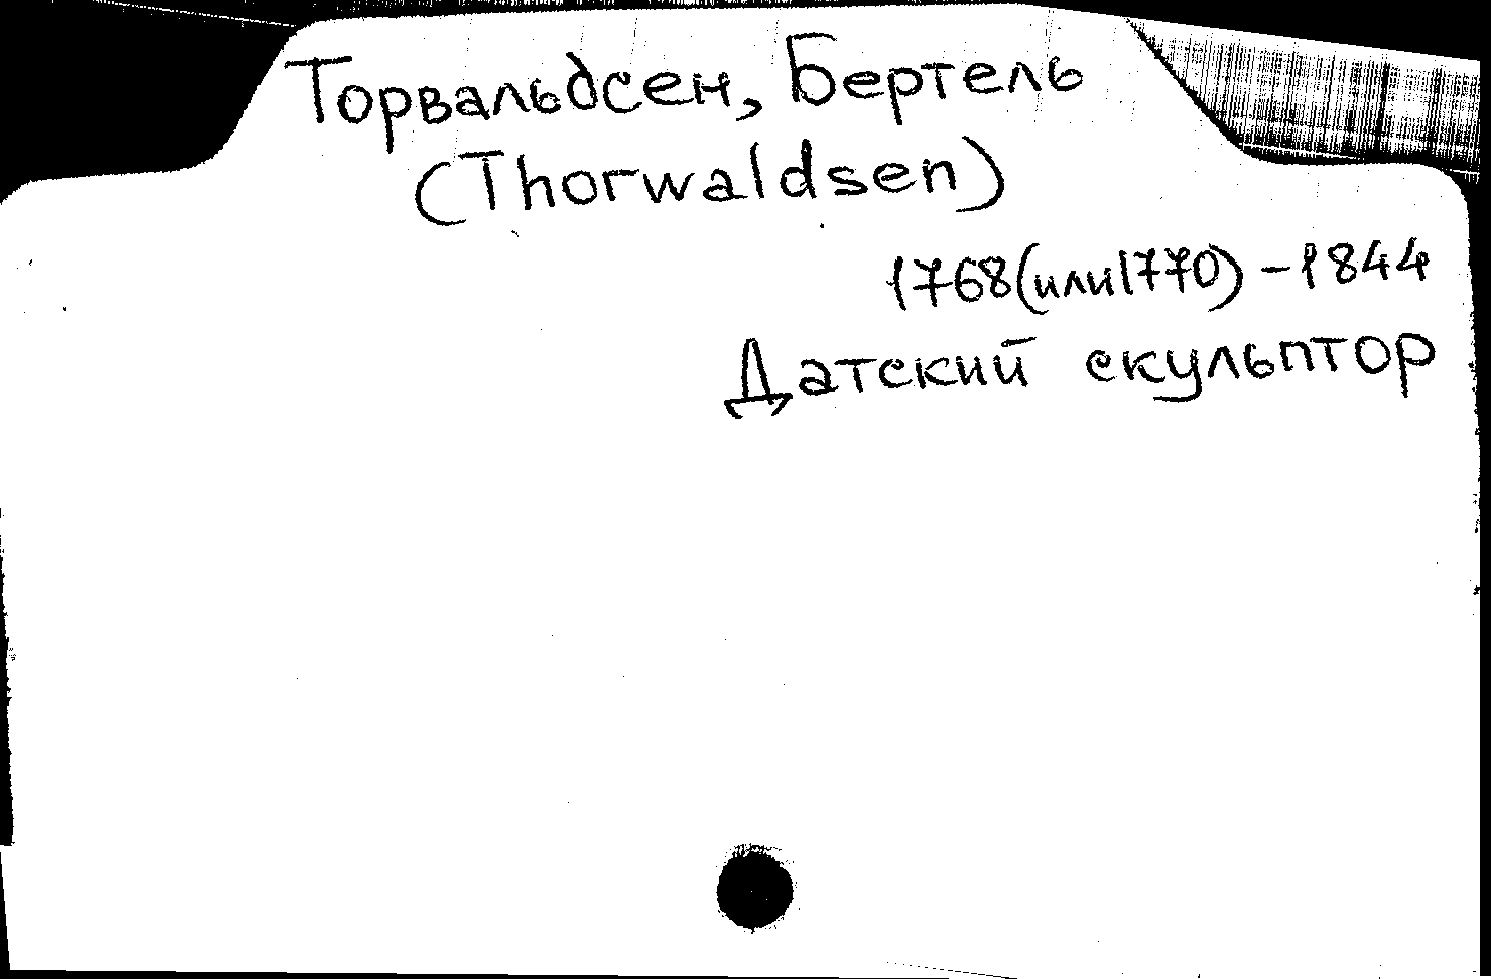 Торвальдсен, Бертель
(Thorwaldsen)
1768(или 1770) – 1844
Датский скульптор